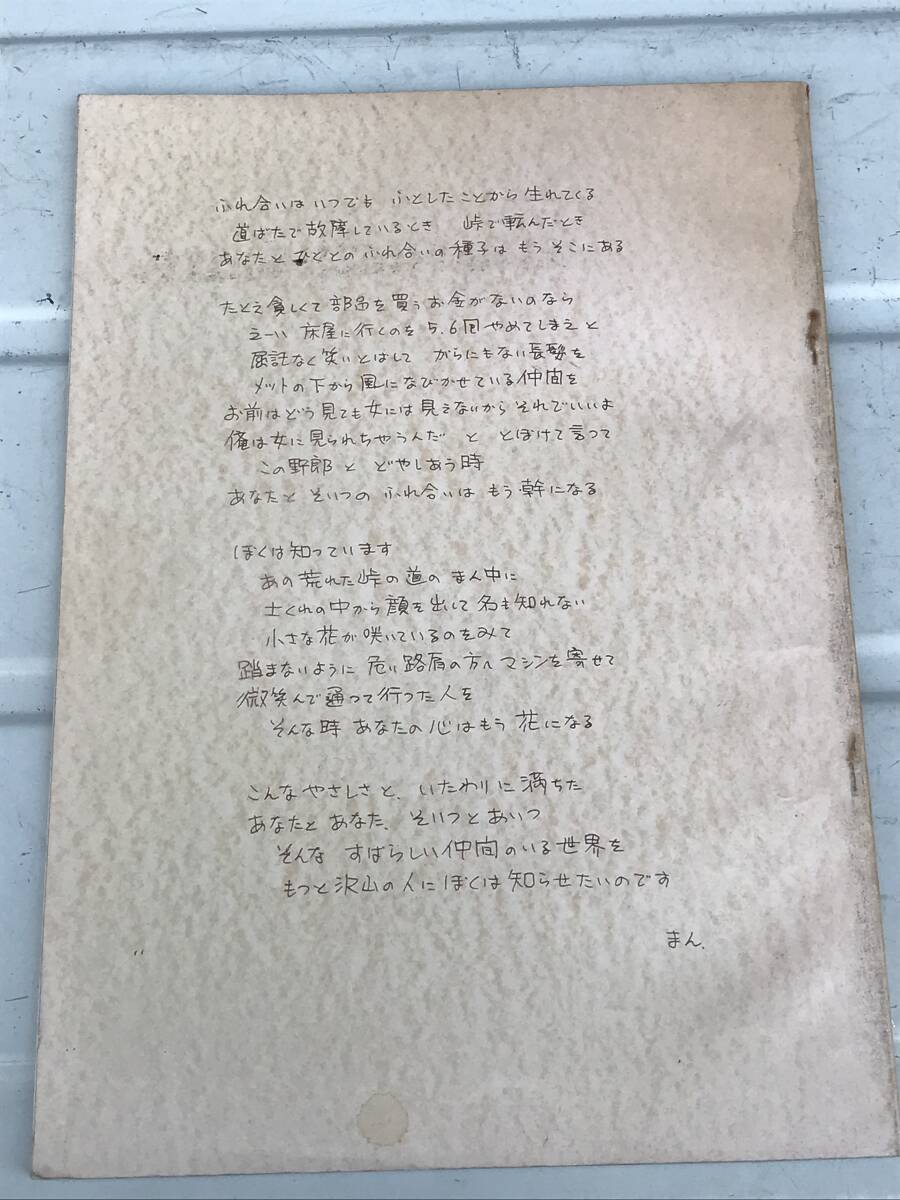 ふれ合いは いつでも ふとしたことから 生れてくる
道ばたで故障しているとき 峠で転んだとき
あなたと ひととの ふれ合いの種子は もう そこにある
たとえ貧しくて 部品を買うお金がないのなら
えーい 床屋に行くのを 5.6回 やめてしまえ と
屈託なく笑いとばして がらにもない長髪を
メットの下から 風になびかせている仲間を
お前はどう見ても女には見えないから それでいいよ
俺は女に見られちゃうんだ と とぼけて言って
この野郎 と どやしあう時
あなたと そいつの ふれ合いは もう 幹になる
ぼくは知っています
あの荒れた峠の道の まん中に
土くれの中から 顔を出して 名も知れない
小さな花が 咲いているのをみて
踏まないように 危い路肩の方へ マシンを寄せて
微笑んで通って行った人を
そんな時 あなたの心はもう 花になる
こんなやさしさと、いたわりに 満ちた
あなたと あなた、そいつとあいつ
そんな すばらしい仲間のいる世界を
もっと沢山の人に ぼくは知らせたいのです
まん.